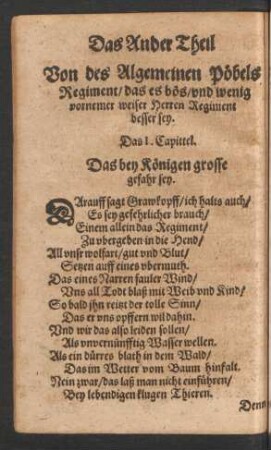 Das Ander Theil
Von des Algemeinen Pöbels
Regiment/ das es bös/ vnd wenig
vornemer weiser Herren Regiment
besser sey.
Das I. Capittel.
Das bey Königen grosse
gefahr sey.
DArauff sagt Grawkopff/ ich halts auch/
Es sey gefehrlicher brauch/
Einem allein das Regiment/
Zu vbergeben in die Hend/
All vnsr wolfart/ gut vnd Blut/
Setzen auff eines vbermuth.
Das eines Narren fauler Wind/
Vns all Todt blaß mit Weib vnd Kind/
So bald jhn reint der tolle Sinn/
Das er vns opffern wil dahin.
Vnd wir das also leiden sollen/
Als vnvernünfftig Wasser wellen.
Als ein dürres blath in dem Wald/
Das im Wetter vom Baum hinfalt.
Nein zwar/ das laß man nicht einführen/
Bey lebendigen klugen Thieren.